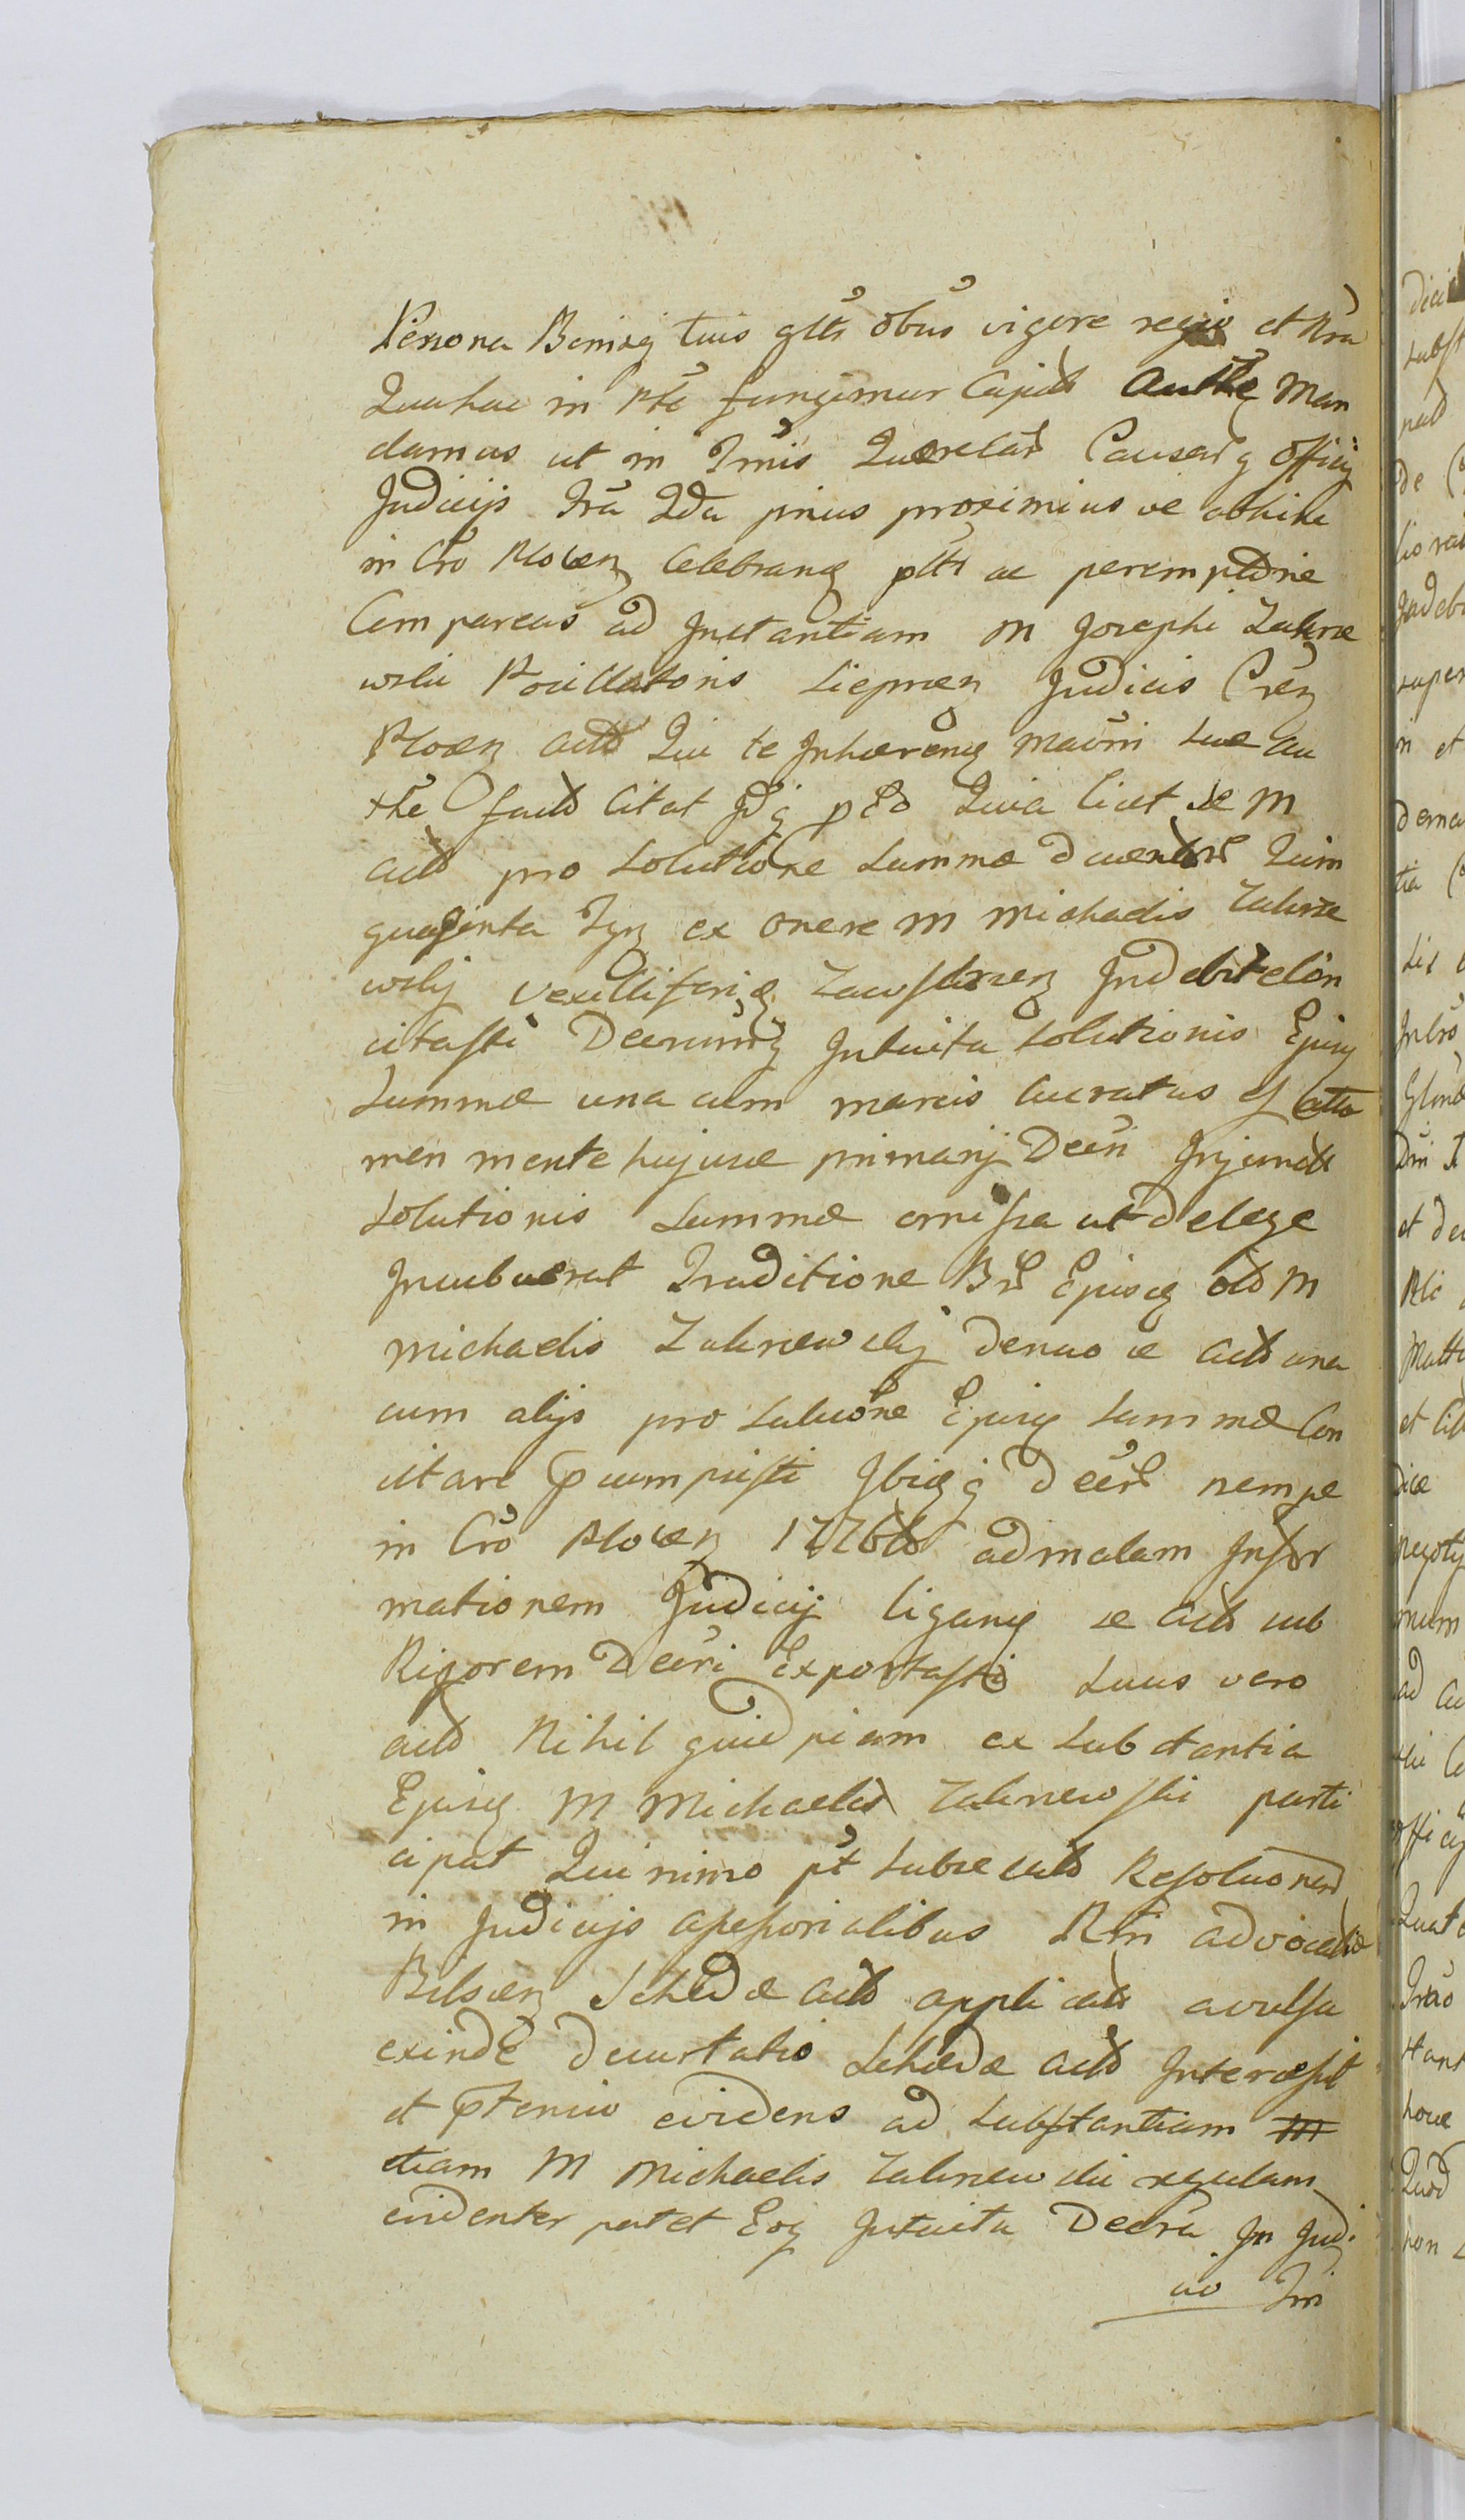 Persona Bonisq tuis gltr obus vigore regio et Nra
Qua hac in Pte fungimur Capit Authe Man
damus ut in Tmis Querelar Causarq Officij
Judicijs Tra Qda prius proximius ve abhinc
in Cro Plocen Celebrang pltr ac peremptorie
Compareas ad Instantiam M Josephi Zakrze
wski Pocillatoris Sieprcen Judicis Cren
Plocen act Qui te Inhaerenq maoni suae au
the fact Citat Idq p Eo Quia licet se M
act pro solutione summae ducentor Quin
quaginta Tyn ex onere M Michaelis Zakrze
wskij Vexilliferi Zawskrzen Indebite
citasti Decrumq Intuitu solutionis Ejusq
summae una cum marcis lucratus es atta
men mente hujusce primarij Decri Injunct
solutionis summae omissa ut de lege
Incubuerat Traditione Br Ejusq od M
Michaelis Zakrzewskij denuo se act una
cum alijs pro soluone Ejusq summae Con
citare Psumpsisti Ibiq decr nempe
in Cro Plocen 1776 ad malam Infor
mationem Judicij ligang se act sub
Rigorem Decri Exportasti suus vero
act Nihil quidpiam ex substantia
Ejusq M Michaelis Zakrzewski parti
cipat Quinimo pt subsecut Resoluonem
in Judicijs Assessorialibus Rni advocatio
Belscen Schedae act applicat avulsa
exinde decurtatio Schedae act Intercessit
et Ptensio evidens ad substantiam
etiam M Michaelis Zakrzewski regulam
evidenter patet Eoq Intuitu Decra In Judi
cio Tm